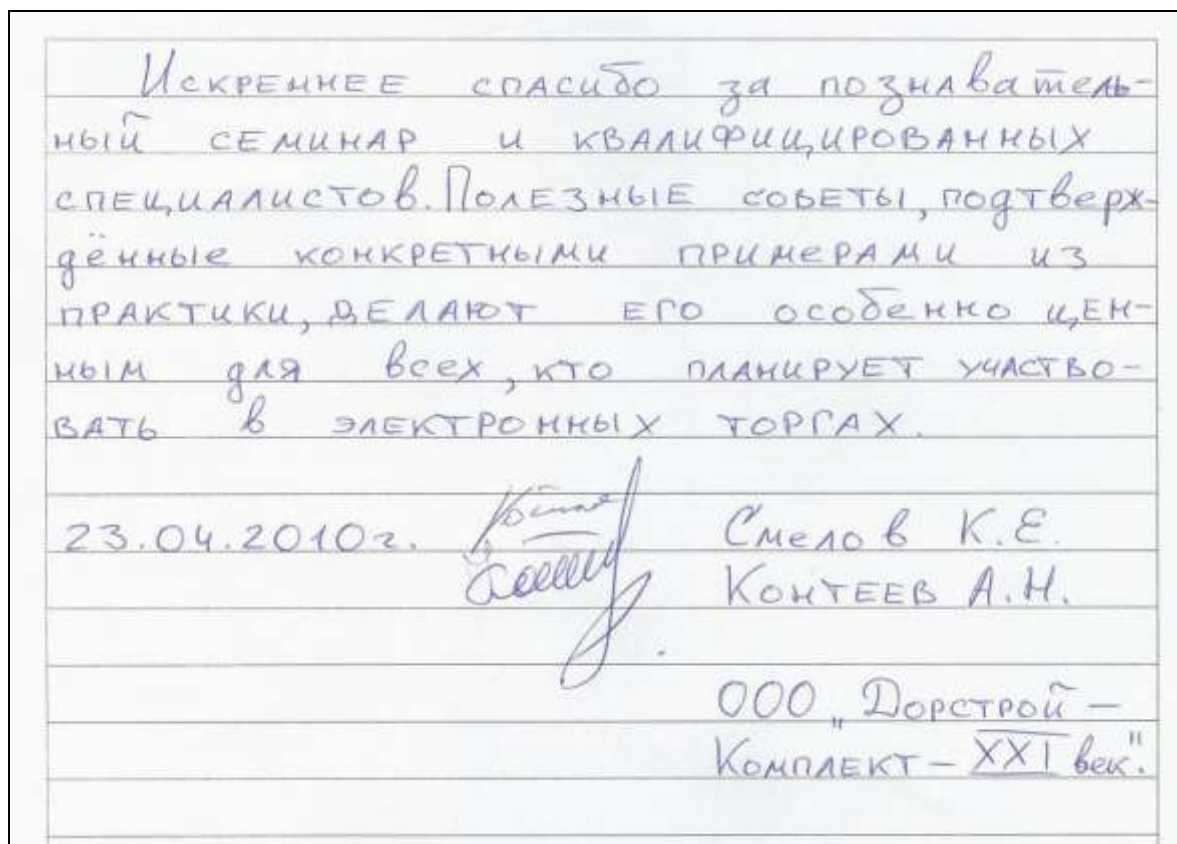 Искреннее спасибо за познаватель-
ный семинар и квалифицированных
специалистов. Полезные советы, подтверж-
дённые конкретными примерами из
практики, делают его особенно цен-
ным для всех, кто планирует участво-
вать в электронных торгах.
23.04.2010г. Смелов К.Е.
Контеев А.Н.
ООО „Дорстрой –
Комплект – XXI век".